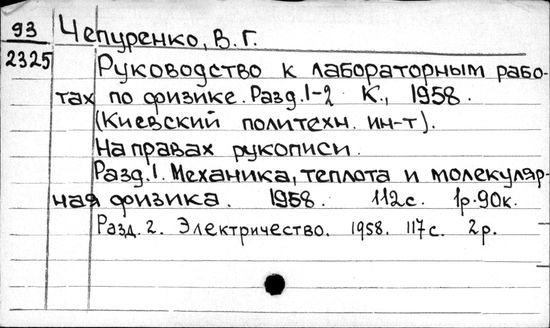 93 Чепуренко, В. Г.
2325 Руководство к лабораторным рабо-
тах по физике. Разд. 1-2 К., 1958.
(Киевский политехн. ин-т).
На правах рукописи.
Разд. 1. Механика, теплота и молекуляр-
ная физика. 1958. 112с. 1р. 90к.
Разд. 2. Электричество. 1958. 117с. 2р.